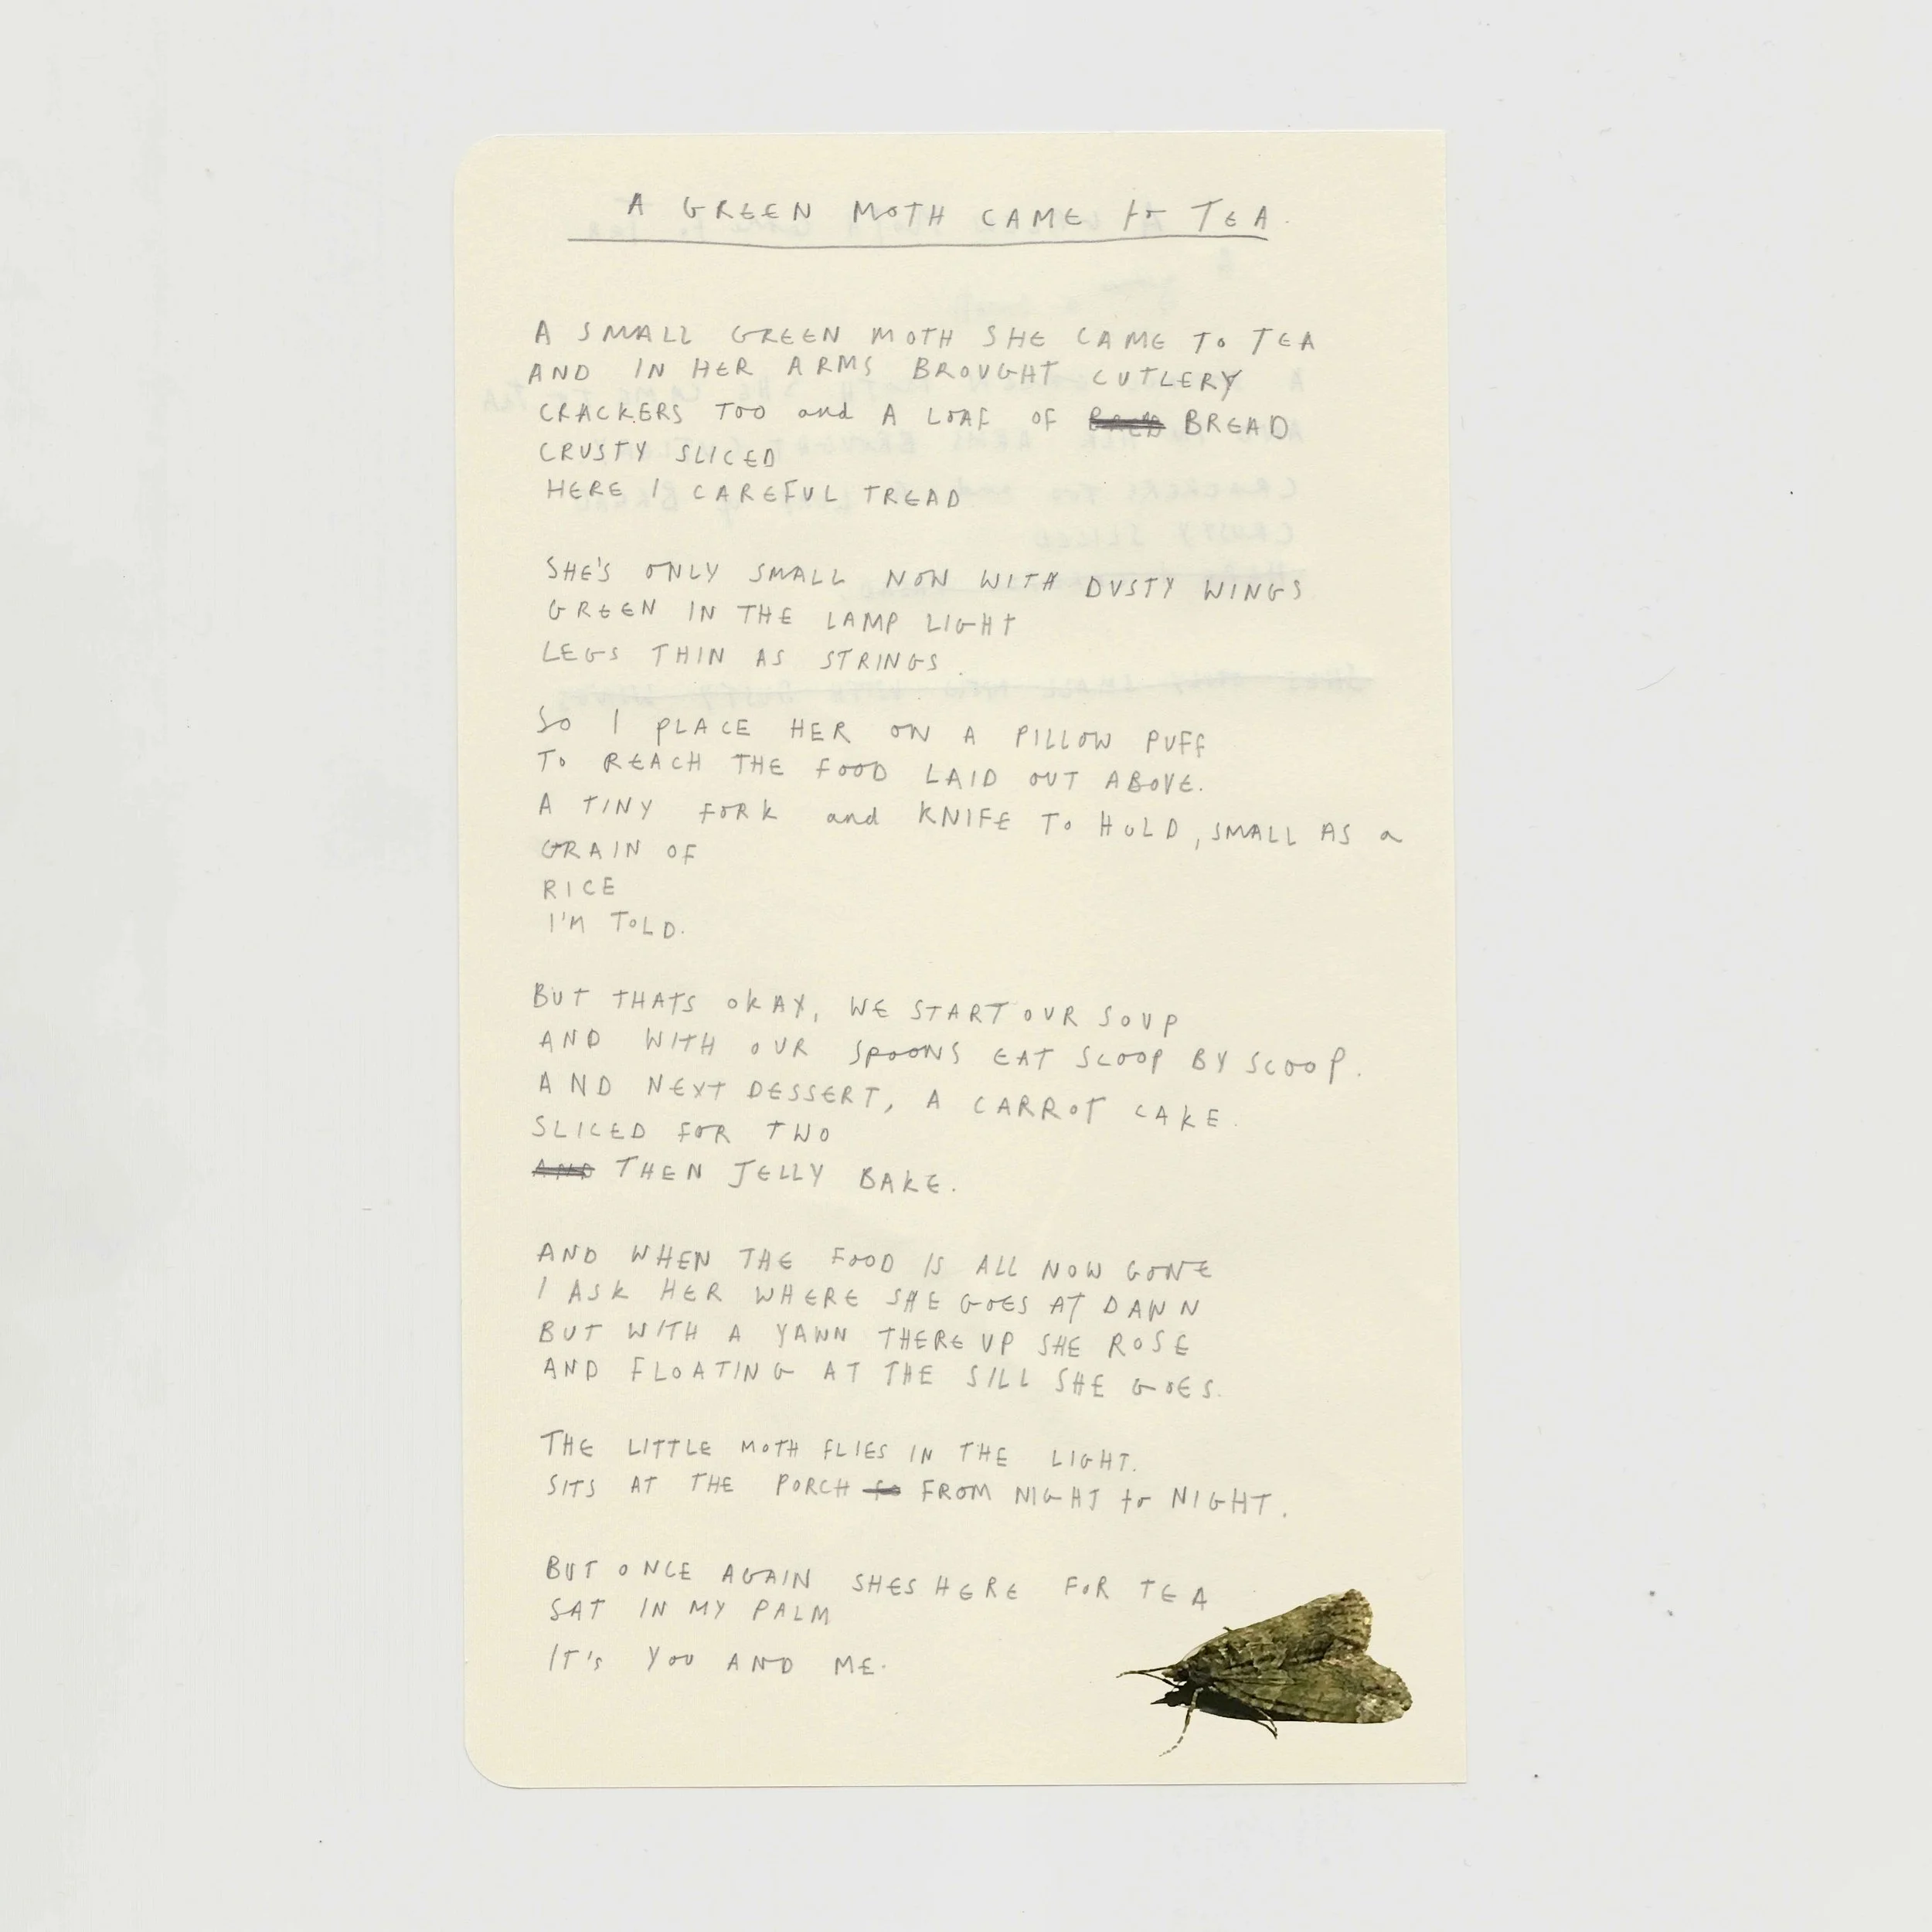 A GREEN MOTH CAME to TEA.
A SMALL GREEN MOTH SHE CAME TO TEA
AND IN HER ARMS BROUGHT CUTLERY
CRACKERS TOO and A LOAF OF BREAD
CRUSTY SLICED
HERE I CAREFUL TREAD
SHE'S ONLY SMALL NOW WITH DUSTY WINGS
GREEN IN THE LAMP LIGHT
LEGS THIN AS STRINGS.
SO I PLACE HER ON A PILLOW PUFF
TO REACH THE FOOD LAID OUT ABOVE.
A TINY FORK and KNIFE TO HOLD, SMALL AS a
GRAIN OF
RICE
I'M TOLD.
BUT THATS OKAY, WE START OUR SOUP
AND WITH OUR SPOONS EAT SCOOP BY SCOOP.
AND NEXT DESSERT, A CARROT CAKE.
SLICED FOR TWO
AND THEN JELLY BAKE.
AND WHEN THE FOOD IS ALL NOW GONE
I ASK HER WHERE SHE GOES AT DAWN
BUT WITH A YAWN THERE UP SHE ROSE
AND FLOATING AT THE SILL SHE GOES.
THE LITTLE MOTH FLIES IN THE LIGHT.
SITS AT THE PORCH FROM NIGHT to NIGHT.
BUT ONCE AGAIN SHES HERE FOR TEA
SAT IN MY PALM
IT's YOU AND ME.